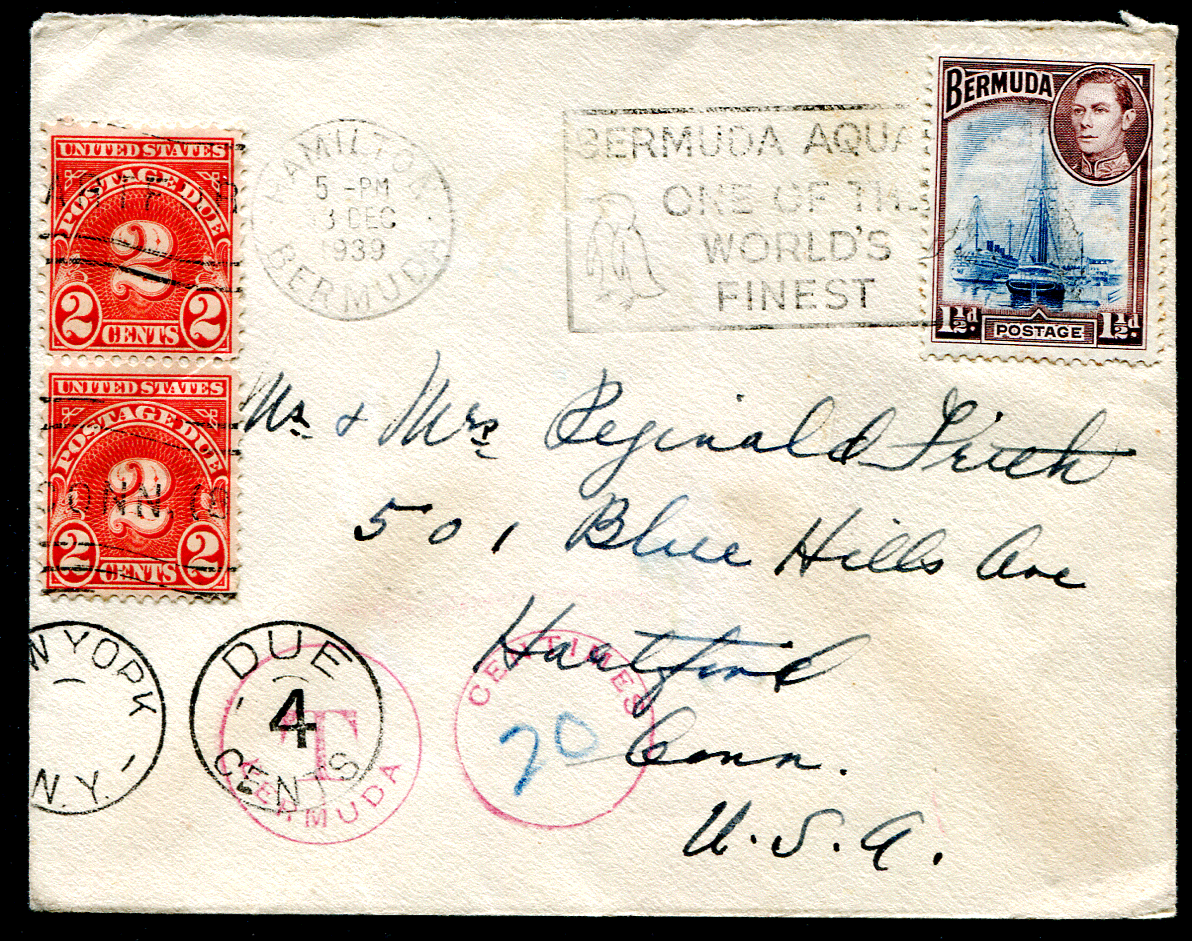 UNITED STATES
POSTAGE DUE
2
2 CENTS 2
UNITED STATES
POSTAGE DUE
2
2 CENTS 2
CONN.
HAMILTON
5 - PM
3 DEC
939
BERMUDA
BERMUDA AQUA
ONE OF THE
WORLD'S
FINEST
BERMUDA
1½d POSTAGE 1½d
Mr. & Mrs Reginald
501 Blue Hills Ave
Hartford
Conn.
U.S.A.
W YORK
N.Y.
DUE
4
CENTS
T
BERMUDA
CENTIMES
20